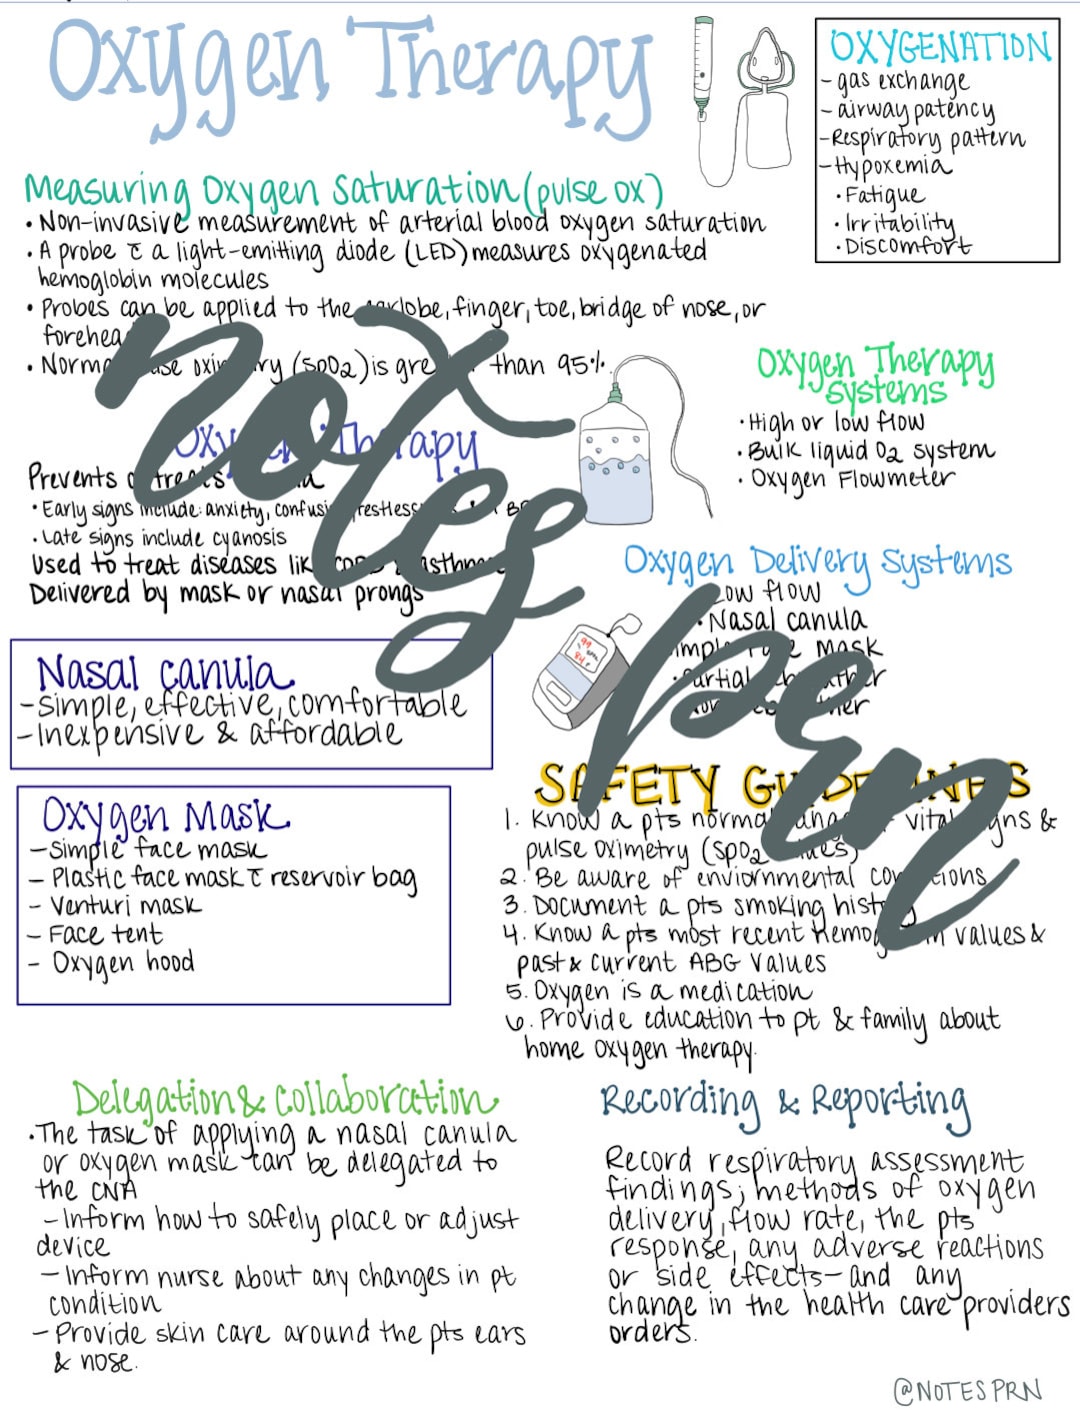 Oxygen Therapy
OXYGENATION
- gas exchange
- airway patency
- Respiratory pattern
- Hypoxemia
• Fatigue
• Irritability
• Discomfort
Measuring Oxygen Saturation (pulse ox)
• Non-invasive measurement of arterial blood oxygen saturation
• A probe c̄ a light-emitting diode (LED) measures oxygenated
hemoglobin molecules
• Probes can be applied to the earlobe, finger, toe, bridge of nose, or
forehead
• Normal pulse oximetry (SpO2) is greater than 95%.
Oxygen Therapy
Prevents or treats
• Early signs include: anxiety, confusion, restlessness
• Late signs include cyanosis
Used to treat diseases like COPD asthma
Delivered by mask or nasal prongs
Oxygen Therapy
Systems
• High or low flow
• Bulk liquid O2 system
• Oxygen Flowmeter
Oxygen Delivery Systems
Low flow
• Nasal canula
Simple face mask
• Partial rebreather
Nonrebreather
99
84
Nasal canula
- Simple, effective, comfortable
- Inexpensive & affordable
Oxygen Mask
- Simple face mask
- Plastic face mask c̄ reservoir bag
- Venturi mask
- Face tent
- Oxygen hood
SAFETY GUIDELINES
1. Know a pts normal range of vital signs &
pulse oximetry (SpO2 values)
2. Be aware of enviornmental conditions
3. Document a pts smoking history
4. Know a pts most recent hemoglobin values &
past & current ABG values
5. Oxygen is a medication
6. Provide education to pt & family about
home oxygen therapy.
Delegation & Collaboration
• The task of applying a nasal canula
or oxygen mask can be delegated to
the CNA
- Inform how to safely place or adjust
device
- Inform nurse about any changes in pt
condition
- Provide skin care around the pts ears
& nose.
Recording & Reporting
Record respiratory assessment
findings; methods of oxygen
delivery, flow rate, the pts
response, any adverse reactions
or side effects - and any
change in the health care providers
orders.
notes prn
@NOTESPRN